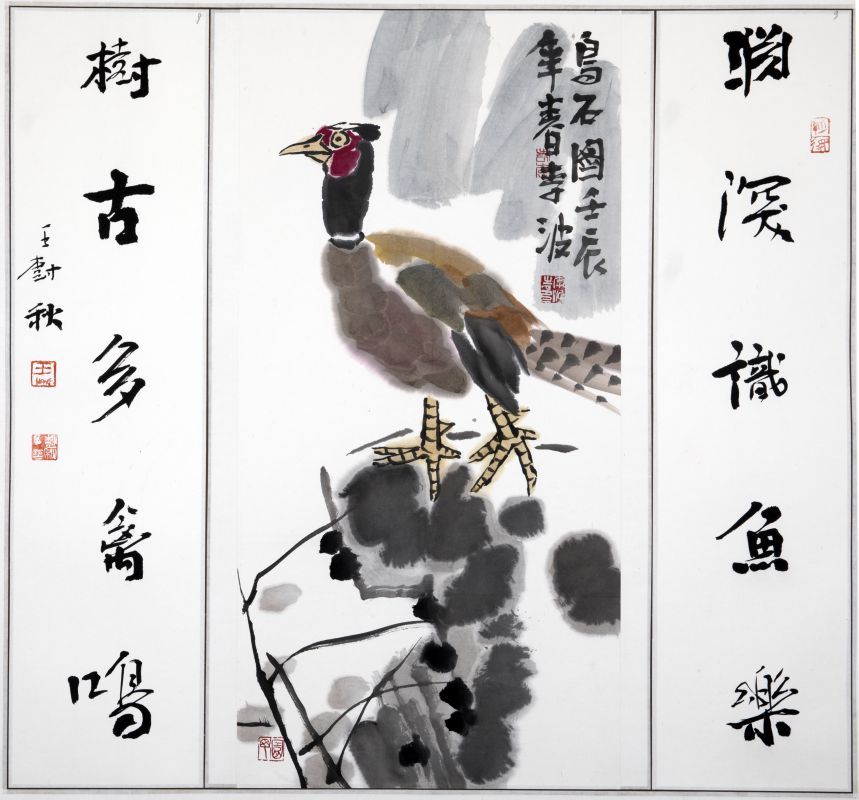 淵深識魚樂
鳥石圖壬辰
年春李波
樹古多禽鳴
王樹秋